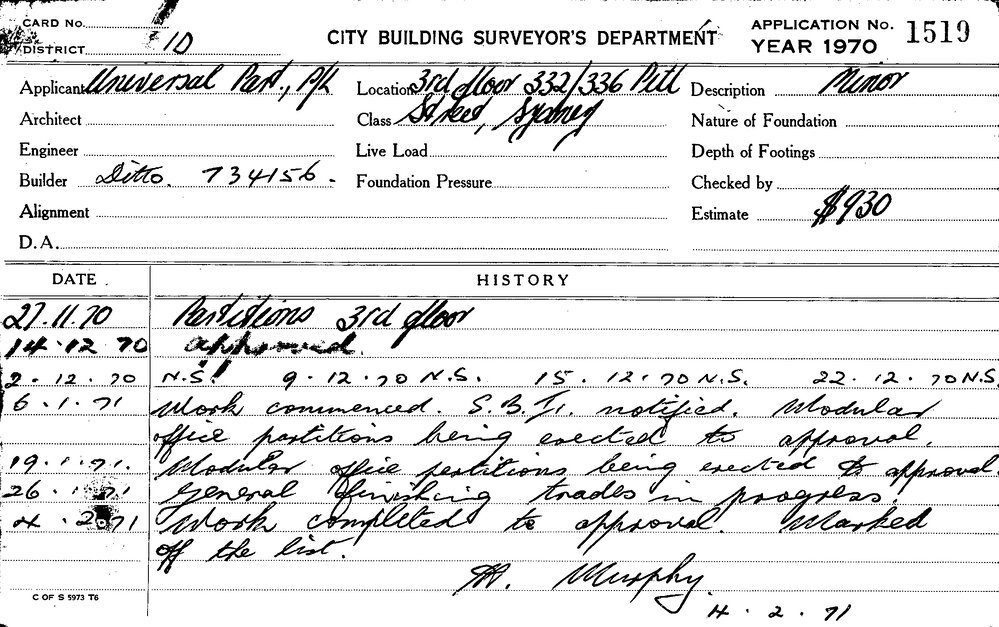 CARD No.
DISTRICT 10
CITY BUILDING SURVEYOR'S DEPARTMENT
APPLICATION No. 1519
YEAR 1970
Applicant Universal Part., P/L
Location 3rd floor 332/336 Pitt
Description Minor
Architect
Class Street, Sydney
Nature of Foundation
Engineer
Live Load
Depth of Footings
Builder Ditto. 734156.
Foundation Pressure
Checked by
Alignment
Estimate $930
D.A.
DATE
HISTORY
27.11.70 Partitions 3rd floor
14.12 70 approved.
2.12.70 N.S. 9.12.70 N.S. 15.12.70 N.S. 22.12.70 N.S.
6.1.71 Work commenced. S.B.I. notified. Modular
office partitions being erected to approval.
19.1.71. Modular office partitions being erected to approval.
26.1.71 General finishing trades in progress.
4.2.71 Work completed to approval. Marked
off the list.
Murphy.
4.2.71
C OF S 5973 T6